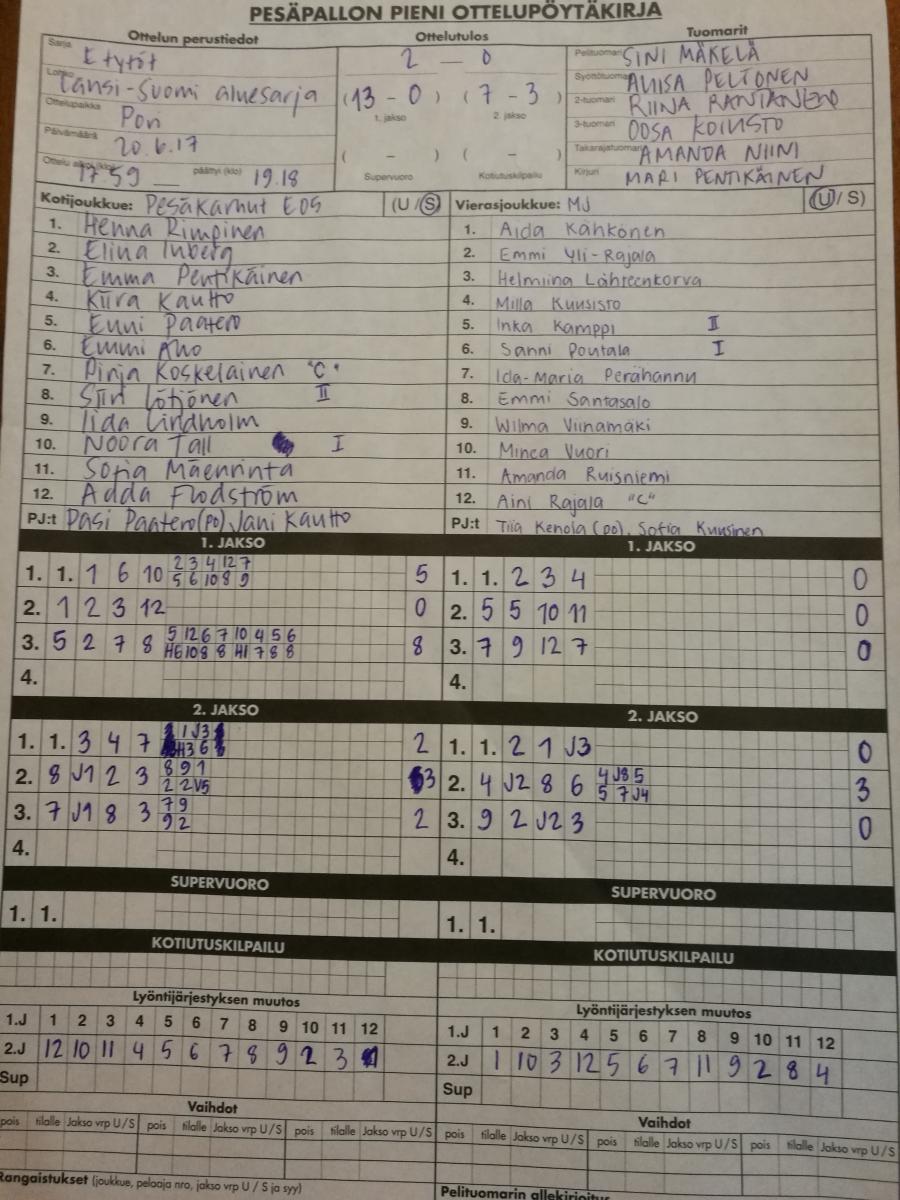 PESÄPALLON PIENI OTTELUPÖYTÄKIRJA
Ottelun perustiedot
Sarja E tytöt
Lohko Länsi-Suomi aluesarja
Ottelupaikka Pori
Päivämäärä 20.6.17
Ottelu alkoi (klo) 17.59 päättyi (klo) 19.18
Ottelutulos
2 – 0
(13 – 0) (7 – 3)
1. jakso 2. jakso
( – ) ( – )
Supervuoro Kotiutuskilpailu
Tuomarit
Pelituomari SINI MÄKELÄ
Syöttötuomari PELTONEN
2-tuomari RIINA RANTANEN
3-tuomari OOSA KOIVISTO
Takarajatuomari AMANDA NIINI
Kirjuri MARI PENTIKÄINEN
Kotijoukkue: Pesäkarhut E05 (U/S)
1. Henna Rimpinen
2. Elina Inberg
3. Emma Pentikäinen
4. Kiira Kautto
5. Enni Paatero
6. Emmi Aho
7. Pinja Koskelainen "C"
8. Siiri Lötjönen II
9. Iida Lindholm
10. Noora Tall I
11. Sofia Mäenrinta
12. Adda Flodström
PJ:t Pasi Paatero (po) Jani Kautto
Vierasjoukkue: MJ (U/S)
1. Aida Kähkönen
2. Emmi Yli-Rajala
3. Helmiina Lähteenkorva
4. Milla Kuusisto
5. Inka Kamppi II
6. Sanni Poutala I
7. Ida-Maria Perähannu
8. Emmi Santasalo
9. Wilma Viinamäki
10. Minea Vuori
11. Amanda Ruisniemi
12. Aini Rajala "C"
PJ:t Tiia Kenola (po), Sofia Kuusinen
1. JAKSO
1. 1. 1 6 10 2 3 4 12 7 5
5 6 10 8 9
2. 1 2 3 12 0
3. 5 2 7 8 5 12 6 7 10 4 5 6 8
H6 10 8 8 H1 7 8 8
4.
1. JAKSO
1. 1. 2 3 4 0
2. 5 5 10 11 0
3. 7 9 12 7 0
4.
2. JAKSO
1. 1. 3 4 7 1 J3 2
H3 6
2. 8 J1 2 3 8 9 1 3
2 2 V5
3. 7 J1 8 3 7 9 2
9 2
4.
2. JAKSO
1. 1. 2 1 J3 0
2. 4 J2 8 6 4 J8 5 3
5 7 J4
3. 9 2 J2 3 0
4.
SUPERVUORO
1. 1.
SUPERVUORO
1. 1.
KOTIUTUSKILPAILU
KOTIUTUSKILPAILU
Lyöntijärjestyksen muutos
1.J 1 2 3 4 5 6 7 8 9 10 11 12
2.J 12 10 11 4 5 6 7 8 9 2 3 1
Sup
Lyöntijärjestyksen muutos
1.J 1 2 3 4 5 6 7 8 9 10 11 12
2.J 1 10 3 12 5 6 7 11 9 2 8 4
Sup
Vaihdot
pois tilalle Jakso vrp U/S pois tilalle Jakso vrp U/S pois tilalle Jakso vrp U/S
Vaihdot
pois tilalle Jakso vrp U/S pois tilalle Jakso vrp U/S pois tilalle Jakso vrp U/S
Rangaistukset (joukkue, pelaaja nro, jakso vrp U / S ja syy)
Pelituomarin allekirjoitus